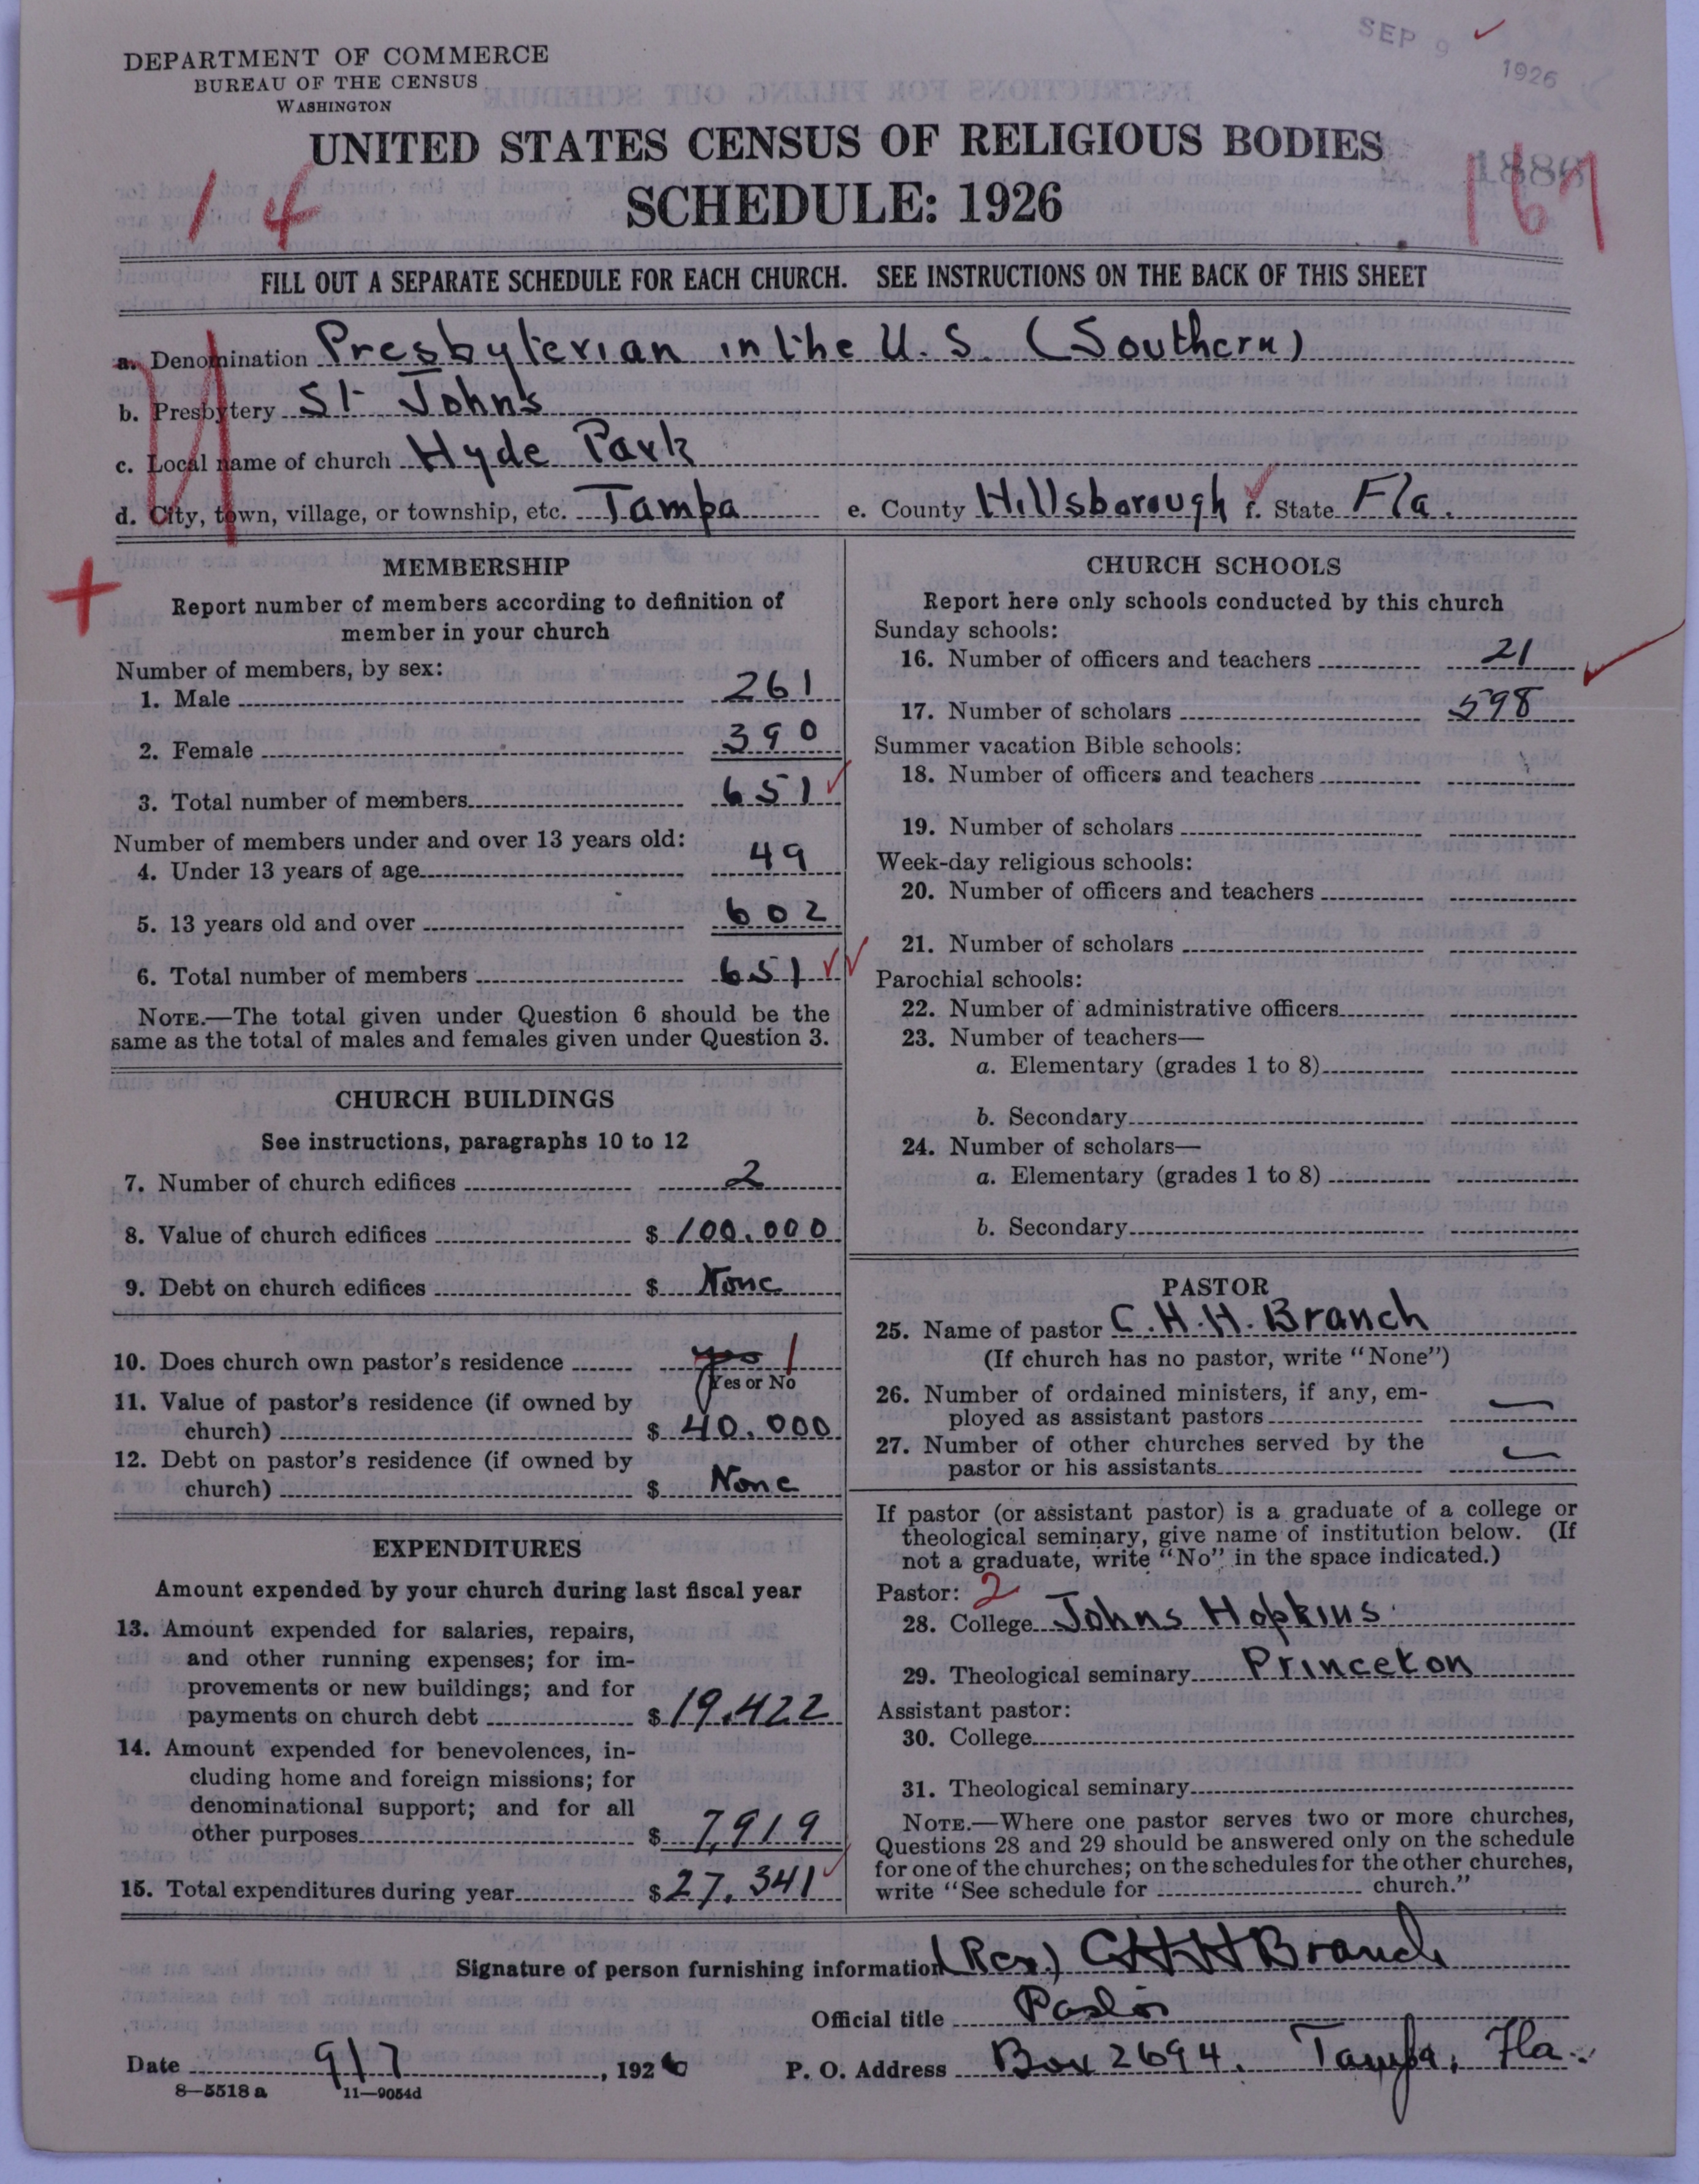 SEP 9 1926
DEPARTMENT OF COMMERCE
BUREAU OF THE CENSUS
WASHINGTON
UNITED STATES CENSUS OF RELIGIOUS BODIES
SCHEDULE: 1926
14
167
FILL OUT A SEPARATE SCHEDULE FOR EACH CHURCH. SEE INSTRUCTIONS ON THE BACK OF THIS SHEET
a. Denomination Presbyterian in the U.S. (Southern)
b. Presbytery St Johns
c. Local name of church Hyde Park
d. City, town, village, or township, etc. Tampa e. County Hillsborough f. State Fla.
MEMBERSHIP
Report number of members according to definition of
member in your church
Number of members, by sex:
1. Male 261
2. Female 390
3. Total number of members 651
Number of members under and over 13 years old:
4. Under 13 years of age 49
5. 13 years old and over 602
6. Total number of members 651
NOTE.—The total given under Question 6 should be the
same as the total of males and females given under Question 3.
CHURCH BUILDINGS
See instructions, paragraphs 10 to 12
7. Number of church edifices 2
8. Value of church edifices $ 100.000
9. Debt on church edifices $ None
10. Does church own pastor's residence yes 1
(Yes or No
11. Value of pastor's residence (if owned by
church) $ 40.000
12. Debt on pastor's residence (if owned by
church) $ None
EXPENDITURES
Amount expended by your church during last fiscal year
13. Amount expended for salaries, repairs,
and other running expenses; for im-
provements or new buildings; and for
payments on church debt $ 19.422
14. Amount expended for benevolences, in-
cluding home and foreign missions; for
denominational support; and for all
other purposes $ 7,919
15. Total expenditures during year $ 27.341
CHURCH SCHOOLS
Report here only schools conducted by this church
Sunday schools:
16. Number of officers and teachers 21
17. Number of scholars 598
Summer vacation Bible schools:
18. Number of officers and teachers
19. Number of scholars
Week-day religious schools:
20. Number of officers and teachers
21. Number of scholars
Parochial schools:
22. Number of administrative officers
23. Number of teachers—
a. Elementary (grades 1 to 8)
b. Secondary
24. Number of scholars—
a. Elementary (grades 1 to 8)
b. Secondary
PASTOR
25. Name of pastor C.H.H. Branch
(If church has no pastor, write "None")
26. Number of ordained ministers, if any, em-
ployed as assistant pastors —
27. Number of other churches served by the
pastor or his assistants —
If pastor (or assistant pastor) is a graduate of a college or
theological seminary, give name of institution below. (If
not a graduate, write "No" in the space indicated.)
Pastor: 2
28. College Johns Hopkins
29. Theological seminary Princeton
Assistant pastor:
30. College
31. Theological seminary
NOTE.—Where one pastor serves two or more churches,
Questions 28 and 29 should be answered only on the schedule
for one of the churches; on the schedules for the other churches,
write "See schedule for church."
Signature of person furnishing information (Rev.) CHH Branch
Official title Pastor
Date 9/7, 1926 P. O. Address Box 2694. Tampa, Fla.
8—5518 a 11—9054d